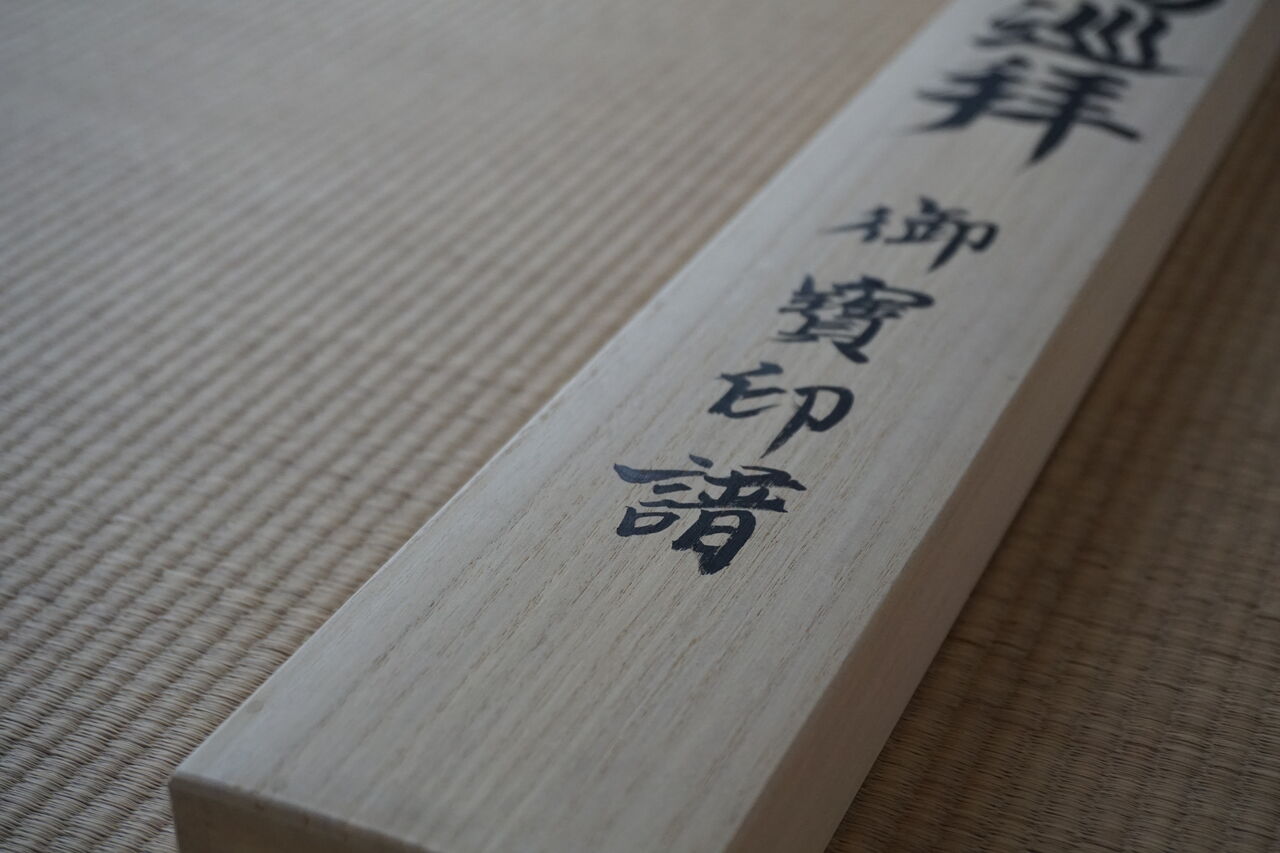 巡拝
御寶印譜